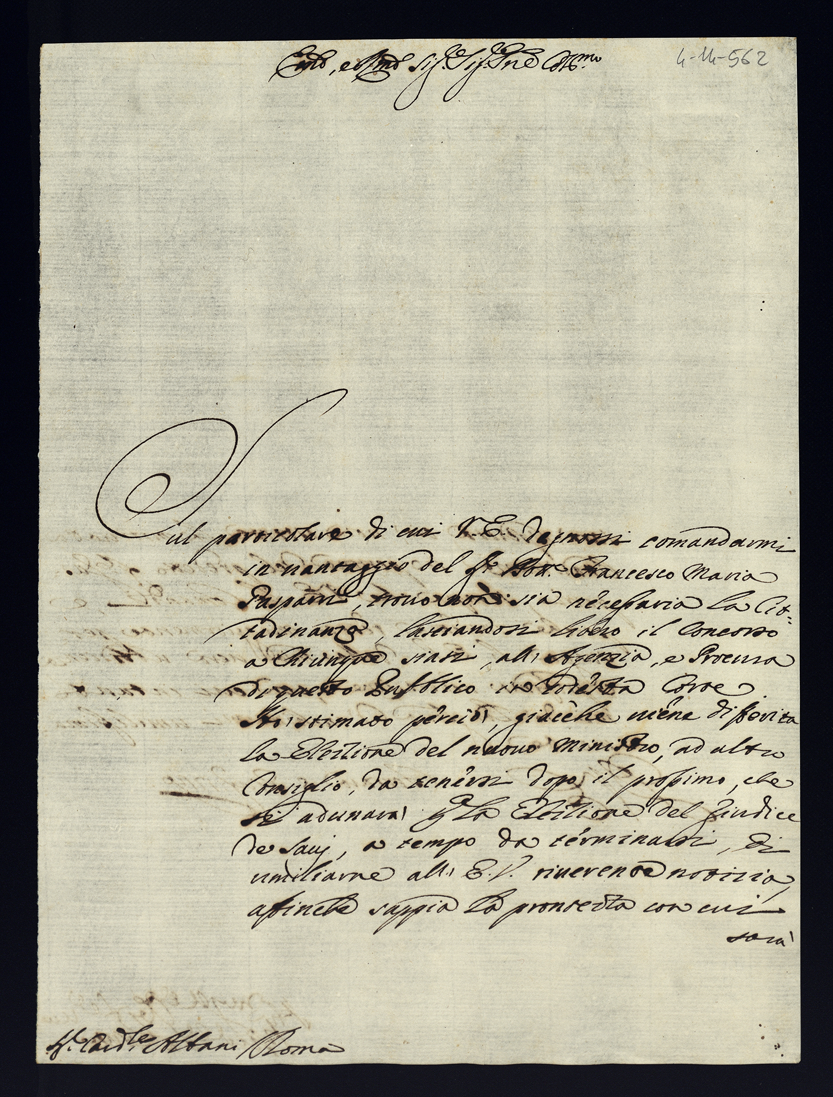 Em̃o, e Rmõ Sig.r Sig.r Pñe Col.mo
4-14-562
Sul particolare di cui V. E. degnossi comandarmi
in vantaggio del Sr. Dott. Francesco Maria
Gasparri, trovo non sia necessaria la Cit=
tadinanza, lasciandosi libero il Concorso
a chiunque siasi, all' Agenzia, e Procura
di questo Pubblico in codesta Corte
Ho stimato perciò, giacchè viene differita
la Elezzione del nuovo Ministro, ad altro
Consiglio, da tenersi dopo il prossimo, che
si adunarà p la Elezzione del Giudice
de Savj, a tempo da terminarsi, di
umiliarne all' E. V. riverente notizia,
affinche sappia la prontezza con cui
sarà
Sr. Card.le Albani Roma